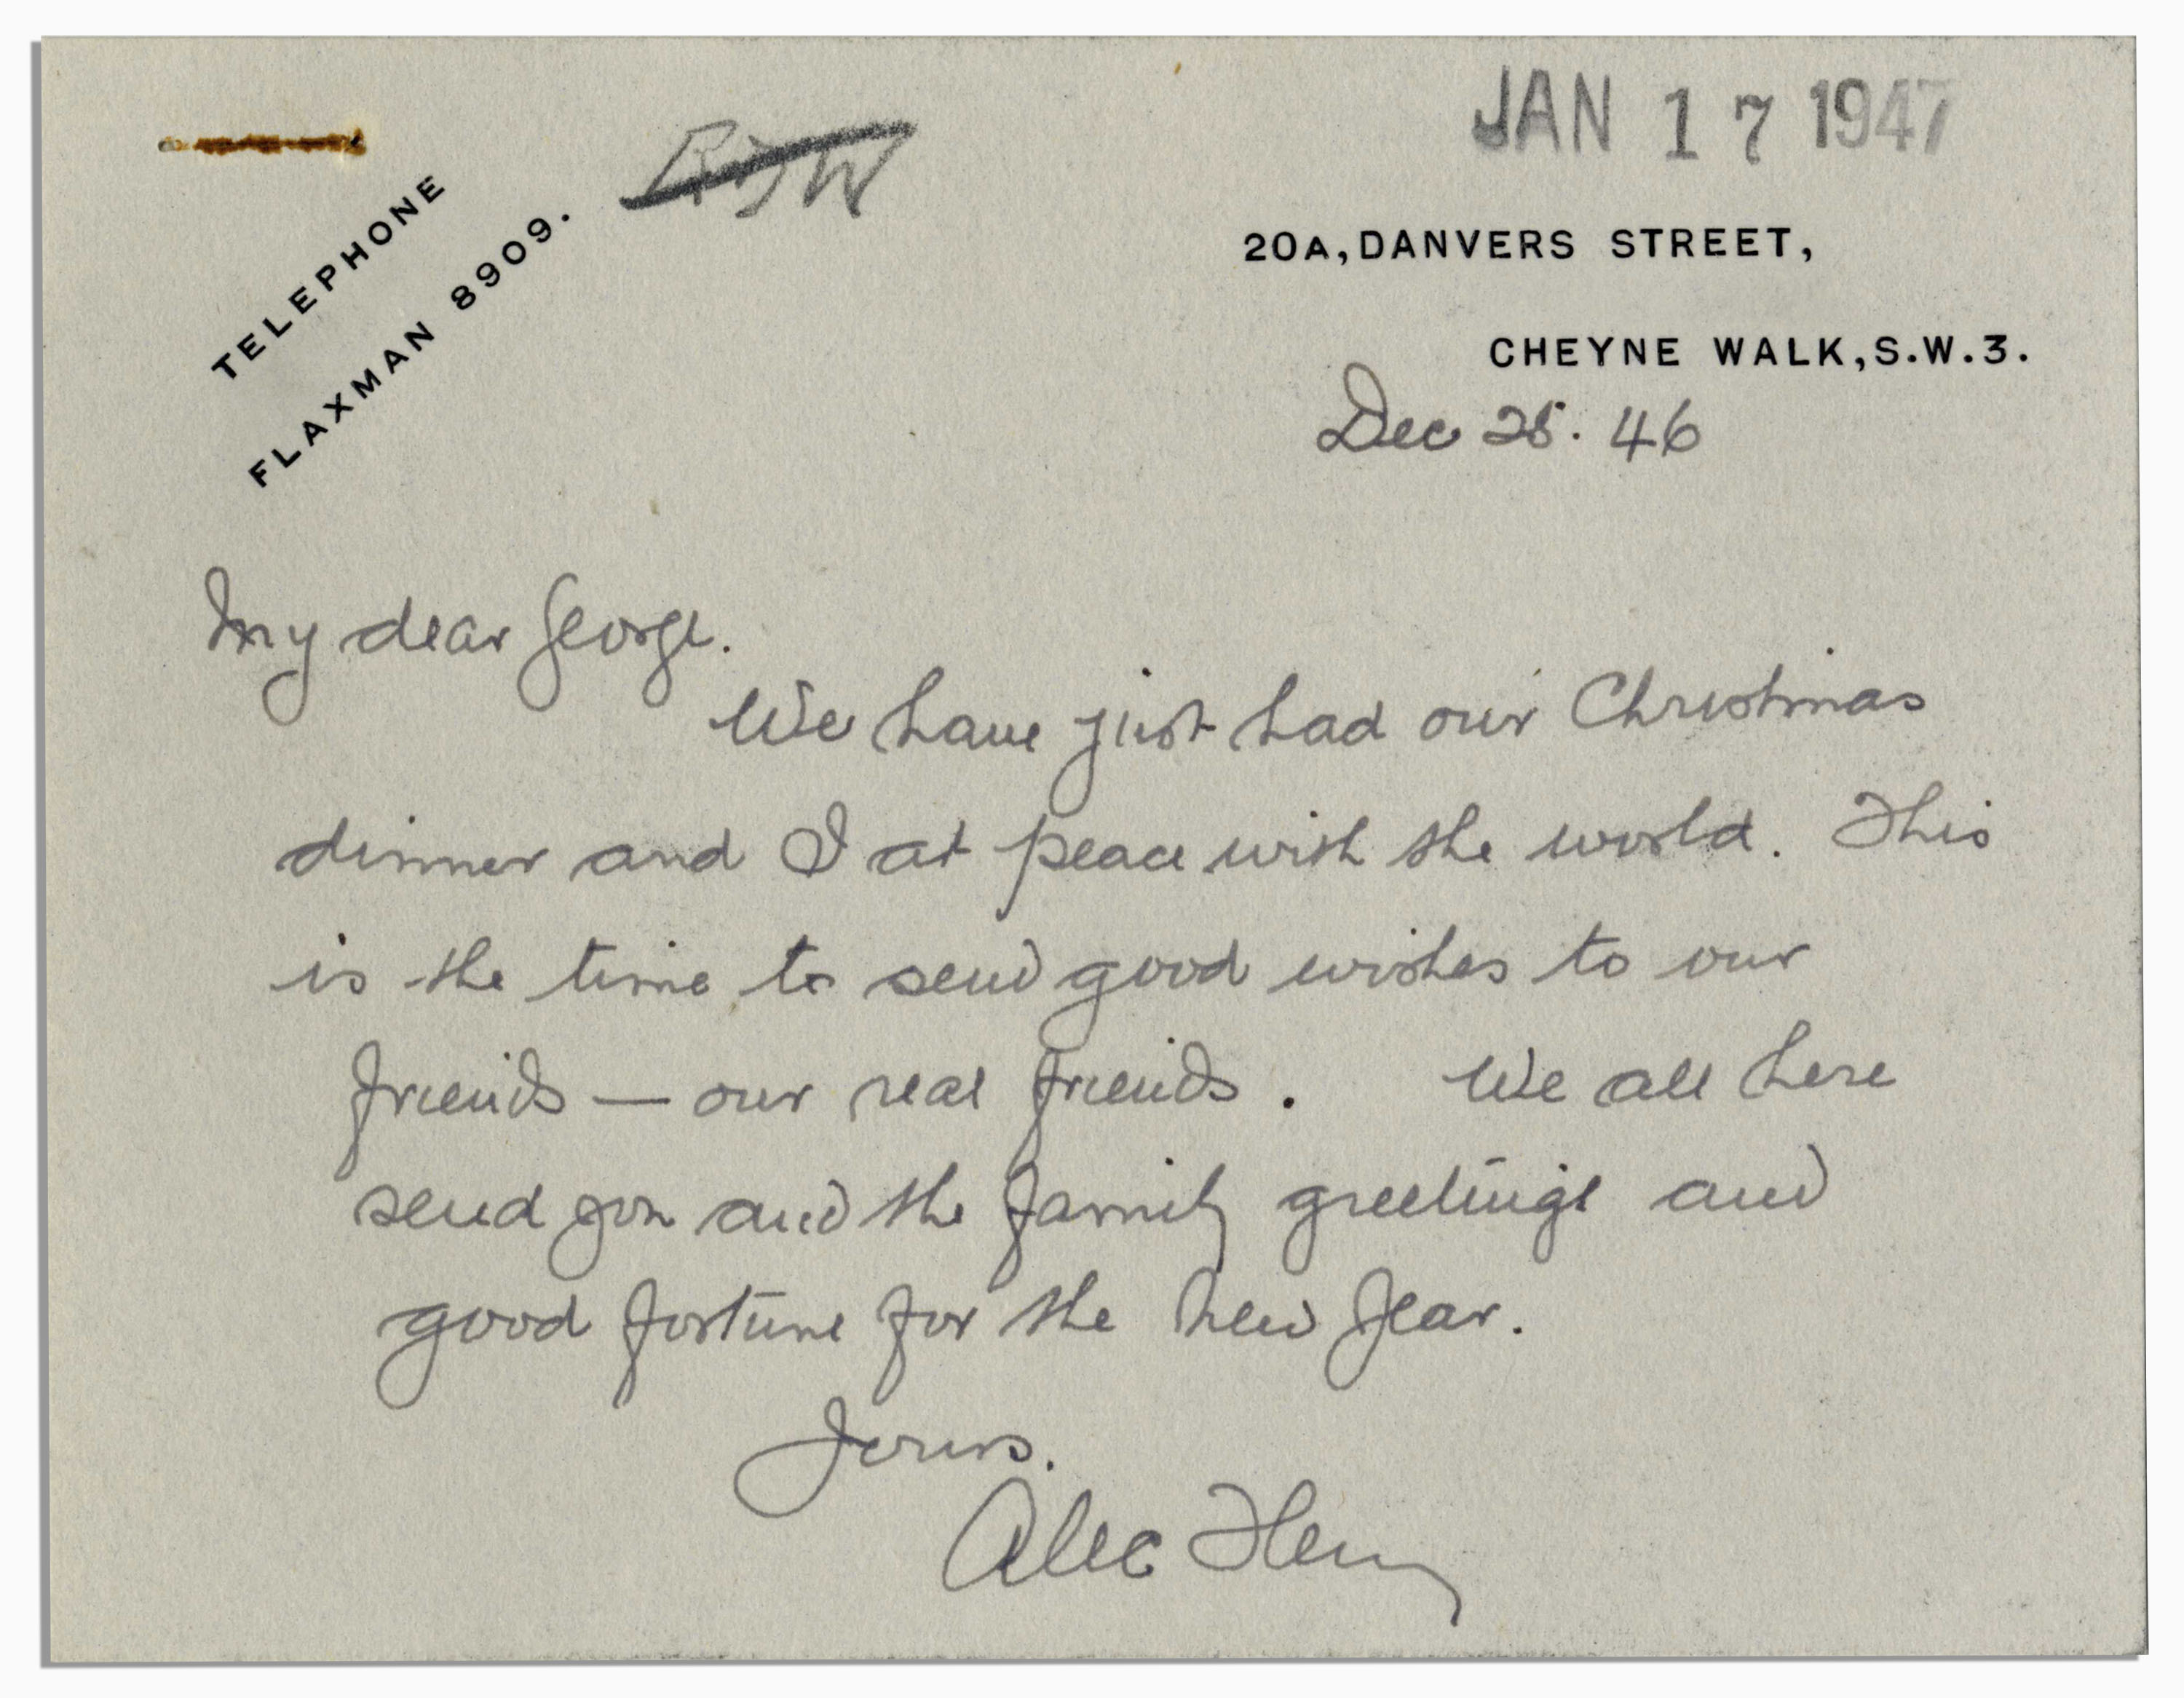 JAN 17 1947
TELEPHONE
FLAXMAN 8909.
20A, DANVERS STREET,
CHEYNE WALK, S.W.3.
Dec 25. 46
My dear George.
We have just had our Christmas
dinner and I at peace with the world. This
is the time to send good wishes to our
friends — our real friends. We all here
send you and the family greetings and
good fortune for the new year.
Yours.
Alec Flem